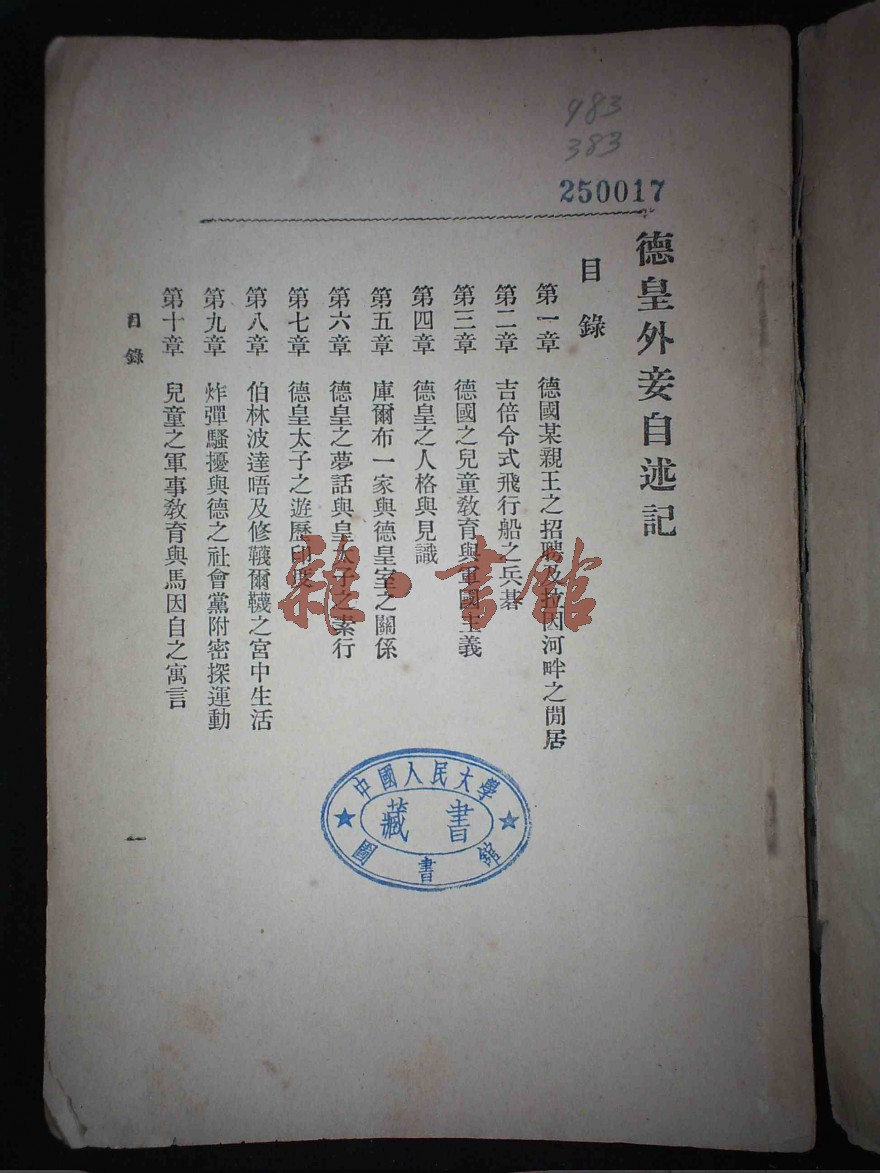 983
383
250017
德皇外妾自述記
目錄
第一章 德國某親王之招聘及拉因河畔之閒居
第二章 吉倍令式飛行船之兵碁
第三章 德國之兒童教育與軍國主義
第四章 德皇之人格與見識
第五章 庫爾布一家與德皇室之關係
第六章 德皇之夢話與皇太子之素行
第七章 德皇太子之遊歷印度
第八章 伯林波達唔及修韈爾韈之宮中生活
第九章 炸彈騷擾與德之社會黨附密探運動
第十章 兒童之軍事教育與馬因自之寓言
目錄
一
雜·書館
中國人民大學
藏書
圖書館